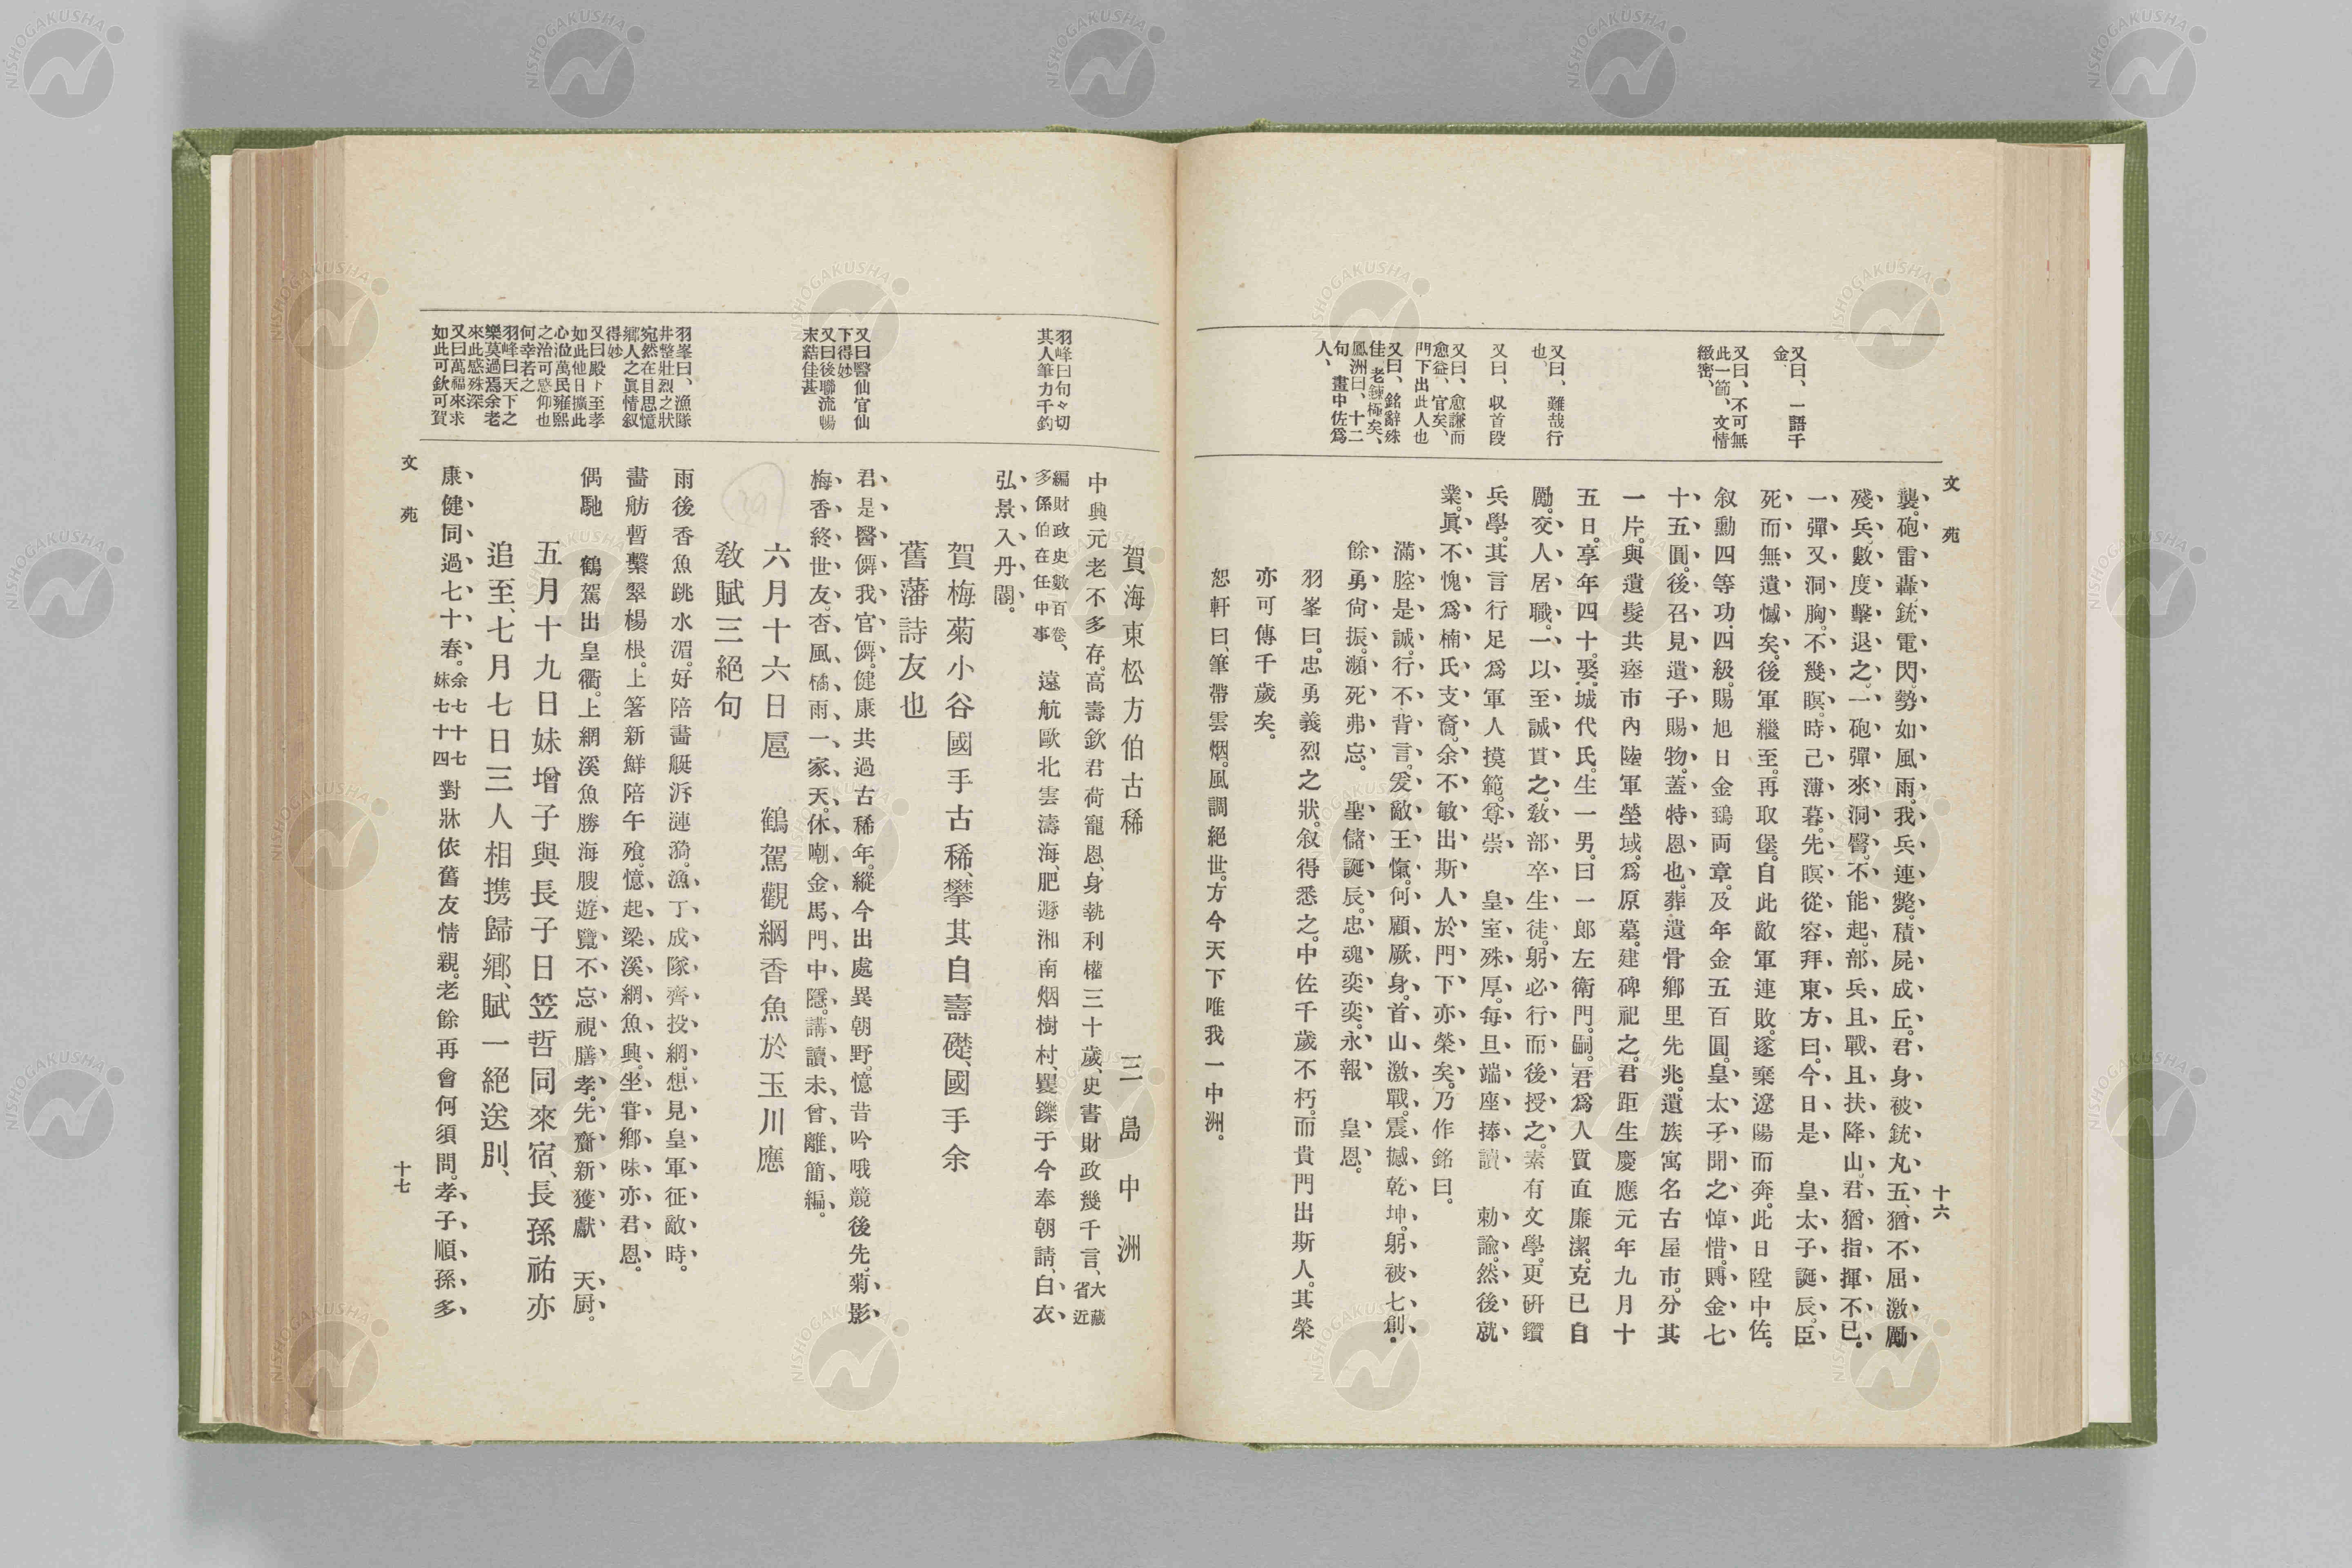 文苑
十六
又曰、一語千
金、
又曰、不可無
此一節、文情
緻密、
又曰、難哉行
也、
又曰、収首段
又曰、愈謙而
愈益、官矣、
門下出此人也
又曰、銘辭殊
佳、老錬極矣、
鳳洲曰、十二
句、畫中佐爲
人、
襲。砲雷轟、銃電閃、勢如風雨。我兵連斃。積屍成丘。君身被銃丸五、猶不屈、激勵
殘兵、數度擊退之。一砲彈來洞臀。不能起。部兵且戰且扶降山。君猶指揮不已。
一彈又洞胸。不幾瞑。時已薄暮。先瞑從容拜東方曰。今日是　皇太子誕辰。臣
死而無遺憾矣。後軍繼至。再取堡。自此敵軍連敗。遂棄遼陽而奔。此日陞中佐。
叙勳四等功四級。賜旭日金鵄両章。及年金五百圓。皇太子聞之悼惜。賻金七
十五圓。後召見遺子賜物。蓋特恩也。葬遺骨鄉里先兆。遺族寓名古屋市。分其
一片。與遺髮共瘞市內陸軍塋域。爲原墓。建碑祀之。君距生慶應元年九月十
五日。享年四十。娶城代氏。生一男。曰一郞左衛門。嗣。君爲人質直廉潔。克己自
勵。交人居職。一以至誠貫之。敎部卒生徒。躬必行而後授之。素有文學。更硏鑽
兵學。其言行足爲軍人摸範。尊崇　皇室殊厚。每旦端座捧讀　勅諭。然後就
業。眞不愧爲楠氏支裔。余不敏出斯人於門下亦榮矣。乃作銘曰。
滿腔是誠。行不背言。爰敵王愾。何顧厥身。首山激戰。震撼乾坤。躬被七創。
餘勇尙振。瀕死弗忘。　聖儲誕辰。忠魂奕奕。永報　皇恩。
羽峯曰。忠勇義烈之狀。叙得悉之。中佐千歲不朽。而貴門出斯人。其榮
亦可傳千歲矣。
恕軒曰。筆帶雲烟。風調絕世。方今天下唯我一中洲。
羽峰曰句々切
其人筆力千鈞
又曰醫仙官仙
下得妙
又曰後聯流暢
末結佳甚
羽峯曰、漁隊
井整壯烈之狀
宛然在目思憶
鄉人之眞情叙
得妙
又曰殿下至孝
如此他日擴此
心涖萬民雍熙
之治可感仰也
何幸若之
羽峰曰天下之
樂莫過焉余老
來此感殊深
又曰萬福來求
如此可欽可賀
賀海東松方伯古稀　三島中洲
中興元老不多存。高壽欽君荷寵恩、身執利權三十歲、史書財政幾千言、大藏
省近
編財政史數百卷、
多係伯在任中事　遠航歐北雲濤海、肥遯湘南烟樹村、矍鑠于今奉朝請、白衣
弘景入丹闥。
賀梅菊小谷國手古稀、攀其自壽礎、國手余
舊藩詩友也
君是醫僊我官僊。健康共過古稀年。縱今出處異朝野。憶昔吟哦競後先。菊影
梅香終世友。杏風橘雨一家天。休嘲金馬門中隱。講讀未曾離簡編。
六月十六日扈　鶴駕觀網香魚於玉川應
敎賦三絕句
雨後香魚跳水湄。好陪畵艇泝漣漪。漁丁成隊齊投網。想見皇軍征敵時。
畵舫暫繫翠楊根。上箸新鮮陪午飱。憶起梁溪網魚興。坐甞鄕味亦君恩。
偶馳　鶴駕出皇衢。上網溪魚勝海腴。遊覽不忘視膳孝。先齎新獲獻　天厨。
五月十九日妹增子與長子日笠哲同來宿、長孫祐亦
追至、七月七日三人相携歸鄕、賦一絕送別、
康健同過七十春。余七十七
妹七十四　對牀依舊友情親。老餘再會何須問。孝子順孫多
文苑
十七